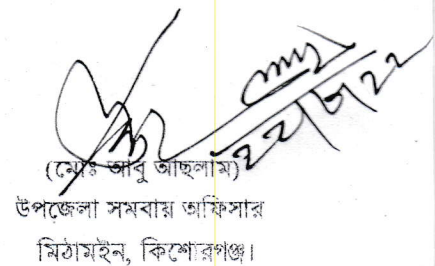 (মোঃ আবু আছলাম)
উপজেলা সমবায় অফিসার
মিঠামইন, কিশোরগঞ্জ।